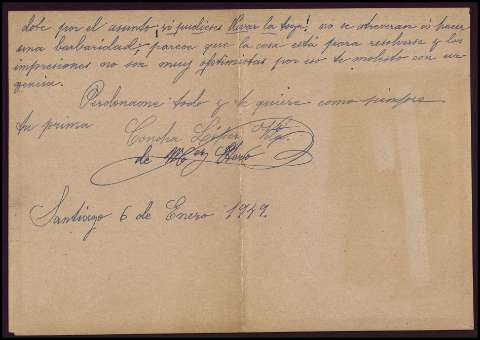 debe por el asunto; si pudieses llevar la toga! no se atreveran a hacer
una barbaridad; parece que la cosa está para resolverse y las
impresiones no son muy optimistas por eso te molesto con ur
gencia.
Perdoname todo y te quiere como siempre
tu prima
Concha López
de
Santiago 6 de Enero 1949.